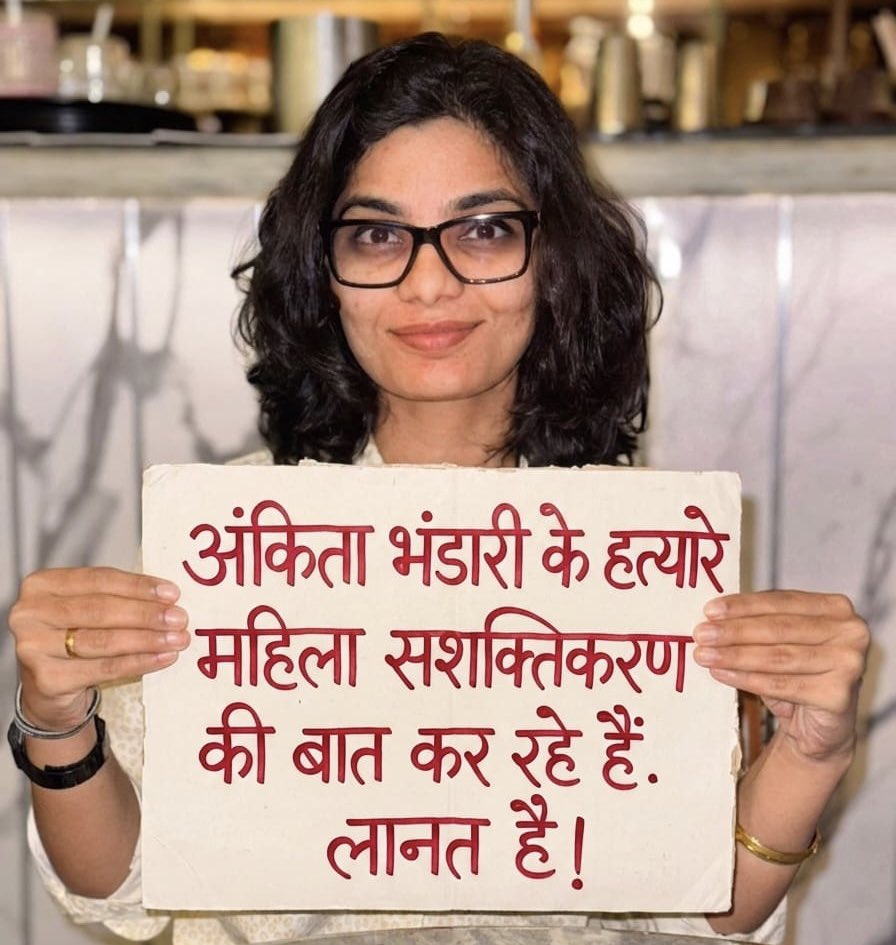 अंकिता भंडारी के हत्यारे
महिला सशक्तिकरण
की बात कर रहे हैं.
लानत है!